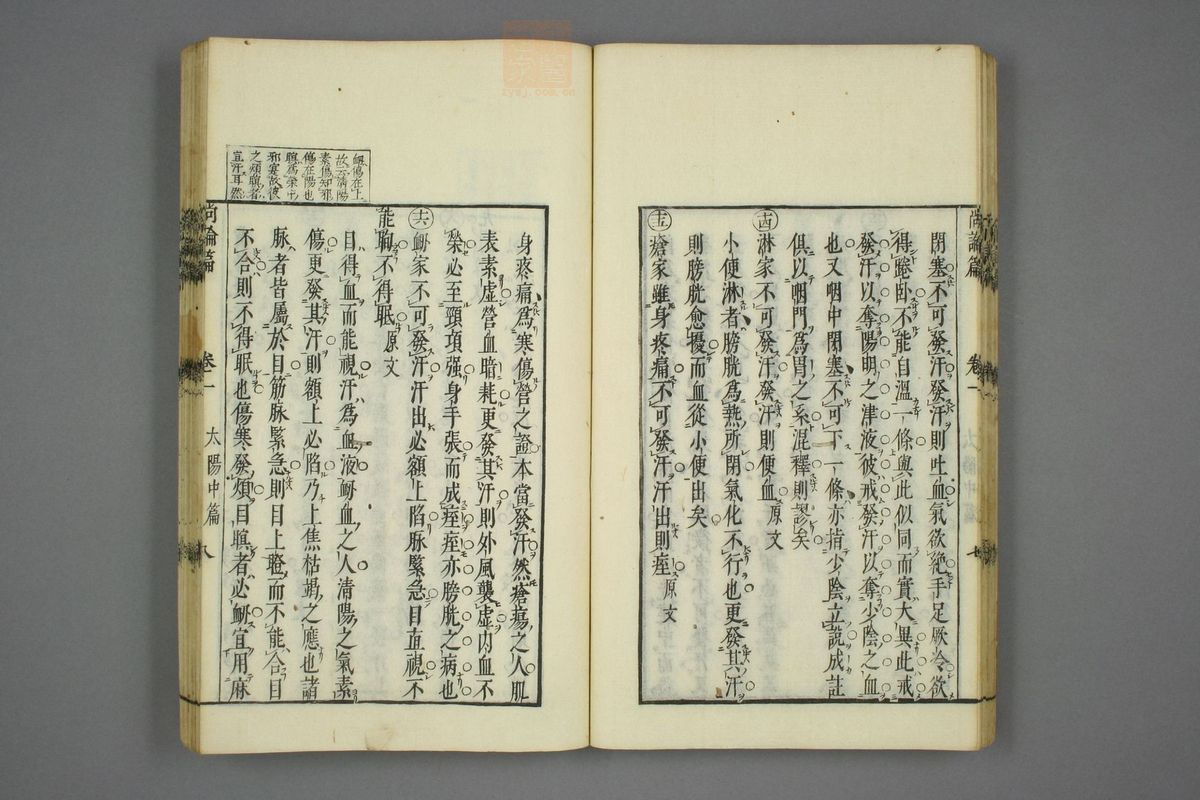 尚論篇 卷一 太陽中篇 七
閉塞不可發汗發汗則吐血氣欲絶手足厥冷欲
得踡臥不能自温一條與此似同而實大異此戒
發汗以奪陽明之津液彼戒發汗以奪少陰之血
也又咽中閉塞不可下一條亦指少陰立說成註
俱以咽門爲胃之系混釋則謬矣
十四 淋家不可發汗發汗則便血原文
小便淋者膀胱爲熱所閉氣化不行也更發其汗
則膀胱愈擾而血從小便出矣
十五 瘡家雖身疼痛不可發汗汗出則痓原文
身疼痛爲寒傷營之證本當發汗然瘡瘍之人肌
表素虛營血暗耗更發其汗則外風襲虛内血不
榮必至頸項强身手張而成痓痓亦膀胱之病也
十六 衂家不可發汗汗出必額上陷脉緊急目直視不
能眴不得眠原文
目得血而能視汗爲血液衂血之人清陽之氣素
傷更發其汗則額上必陷乃上焦枯竭之應也諸
脉者皆屬於目筋脉緊急則目上瞪而不能合目
不合則不得眠也傷寒發煩目瞑者必衂宜用麻
衂傷在上
故云清陽
素傷知邪
傷在陽也
瞑爲榮中
邪宴故彼
之煩瞑者
宜汗耳然
尚論篇 卷一 太陽中篇 八
zysj.com.cn